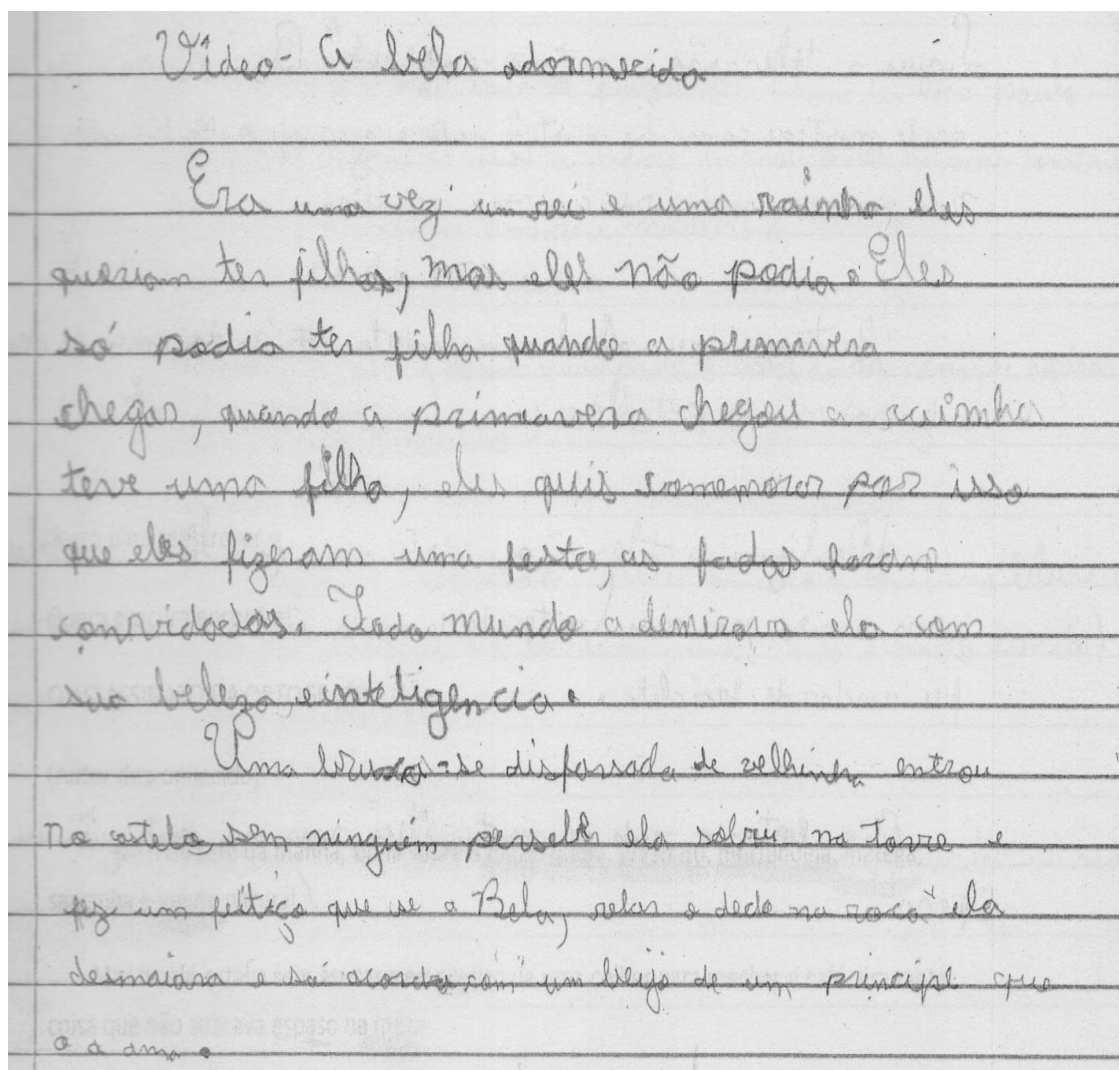 Vídeo - A bela adormecida
Era uma vez um rei e uma rainha, eles
queriam ter filhos, mas eles não podia. Eles
só podia ter filha quando a primavera
chegar, quando a primavera chegou a rainha
teve uma filha, eles quis comemorar por isso
que eles fizeram uma festa, as fadas foram
convidadas. Todo mundo ademirava ela com
sua beleza, einteligencia.
Uma bruxa-se disfarsada de velhinha entrou
no castelo, sem ninguém ela na torre e
fez um feitiço que se a Bela, relar o dedo na roca ela
desmaiara e só acorda com um beijo de um principe que
a ama.